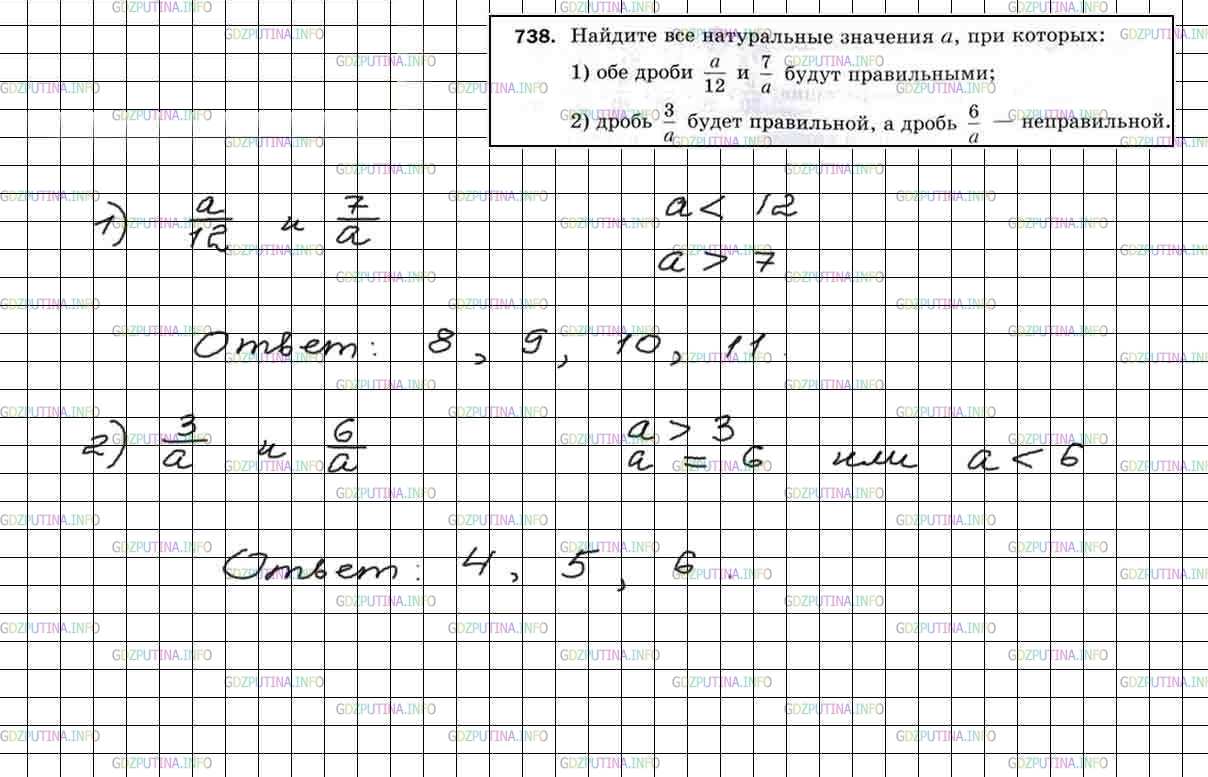 738. Найдите все натуральные значения a, при которых:
1) обе дроби a/12 и 7/a будут правильными;
2) дробь 3/a будет правильной, а дробь 6/a — неправильной.
1) a/12 и 7/a a < 12
a > 7
Ответ: 8, 9, 10, 11.
2) 3/a и 6/a a > 3
a = 6 или a < 6
Ответ: 4, 5, 6.
GDZPUTINA.INFO